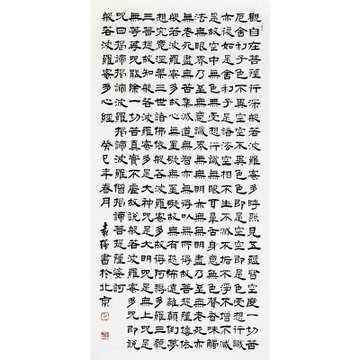 觀自在菩薩行深般若波羅蜜多時照見五蘊皆空度一切苦
厄舍利子色不異空空不異色色即是空空即是色受想行識
亦復如是舍利子是諸法空相不生不滅不垢不淨不增不減
是故空中無色無受想行識無眼耳鼻舌身意無色聲香味觸
法無眼界乃至無意識界無無明亦無無明盡乃至無老死亦
無老死盡無苦集滅道無智亦無得以無所得故菩提薩埵依
般若波羅蜜多故心無罣礙無罣礙故無有恐怖遠離顛倒夢
想究竟涅槃三世諸佛依般若波羅蜜多故得阿耨多羅三藐
三菩提故知般若波羅蜜多是大神咒是大明咒是無上咒是
無等等咒能除一切苦真實不虛故說般若波羅蜜多咒即說
咒曰揭諦揭諦波羅揭諦波羅僧揭諦菩提薩婆訶
般若波羅蜜多心經 癸巳年春月 書於北京